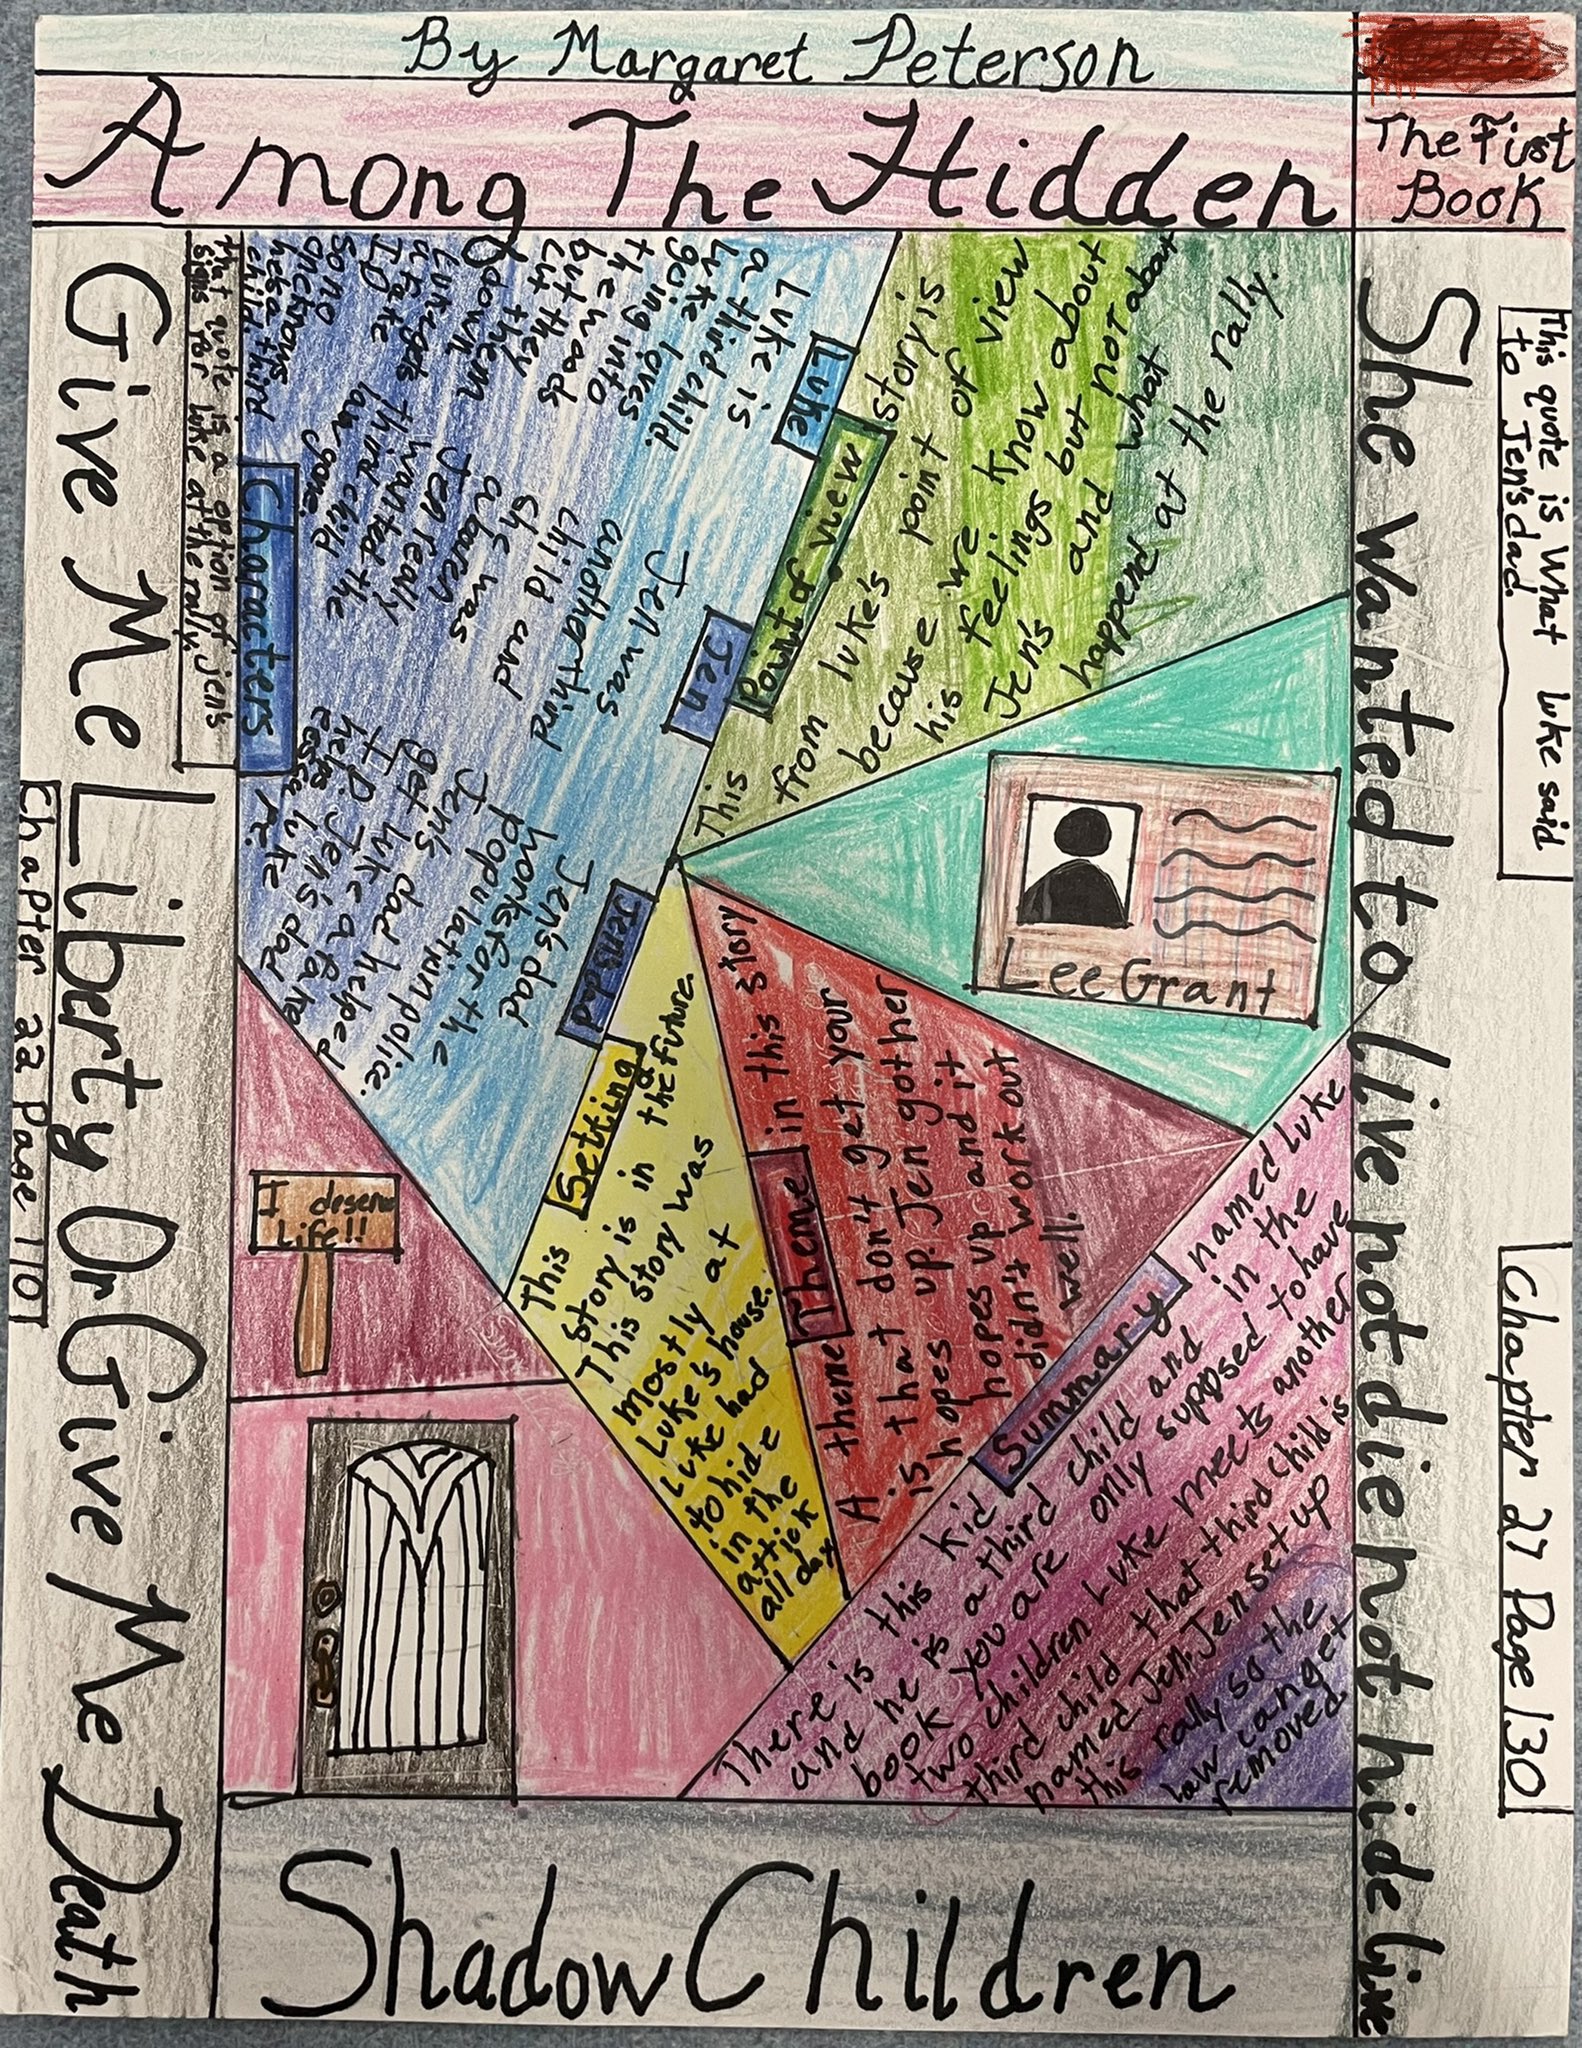 By Margaret Peterson
Among The Hidden
The First
Book
She wanted to live not die not hide live
This quote is What luke said
to Jen's dad.
Chapter 27 Page 130
Give Me Liberty Or Give Me Death
that quote is a option of Jen's
signs for luke at the rally.
Chapter 22 Page 110
Characters
Luke
Luke is
a third child.
Luke loves
going into
the woods
but they
cut them
down
Luke gets
a fake
I.D
so no
one knows
he's a third
child.
Jen
Jen was
another third
child and
she was
Jen really
wanted the
third child
law gone.
Jen's dad
Jen's dad
works for the
population police.
Jen's dad helped
get luke a fake
I.D. Jen's dad
helps luke
escape.
Point of view
This story is
from luke's point of view
because we know about
his feelings but not about
Jen's and what
happend at the rally.
Lee Grant
Setting
This
story is in the future.
This story was
mostly at
Luke's house.
Luke had
to hide
in the
attick
all day
Theme
A theme in this story
is that don't get your
hopes up. Jen got her
hopes up and it
didn't work out
well.
Summary
There is this kid named Luke
and he is a third child and in the
book you are only supposed to have
two children Luke meets another
third child that third child is
named Jen. Jen set up
this rally so the
law can get
removed
I deserve
life!!
Shadow Children